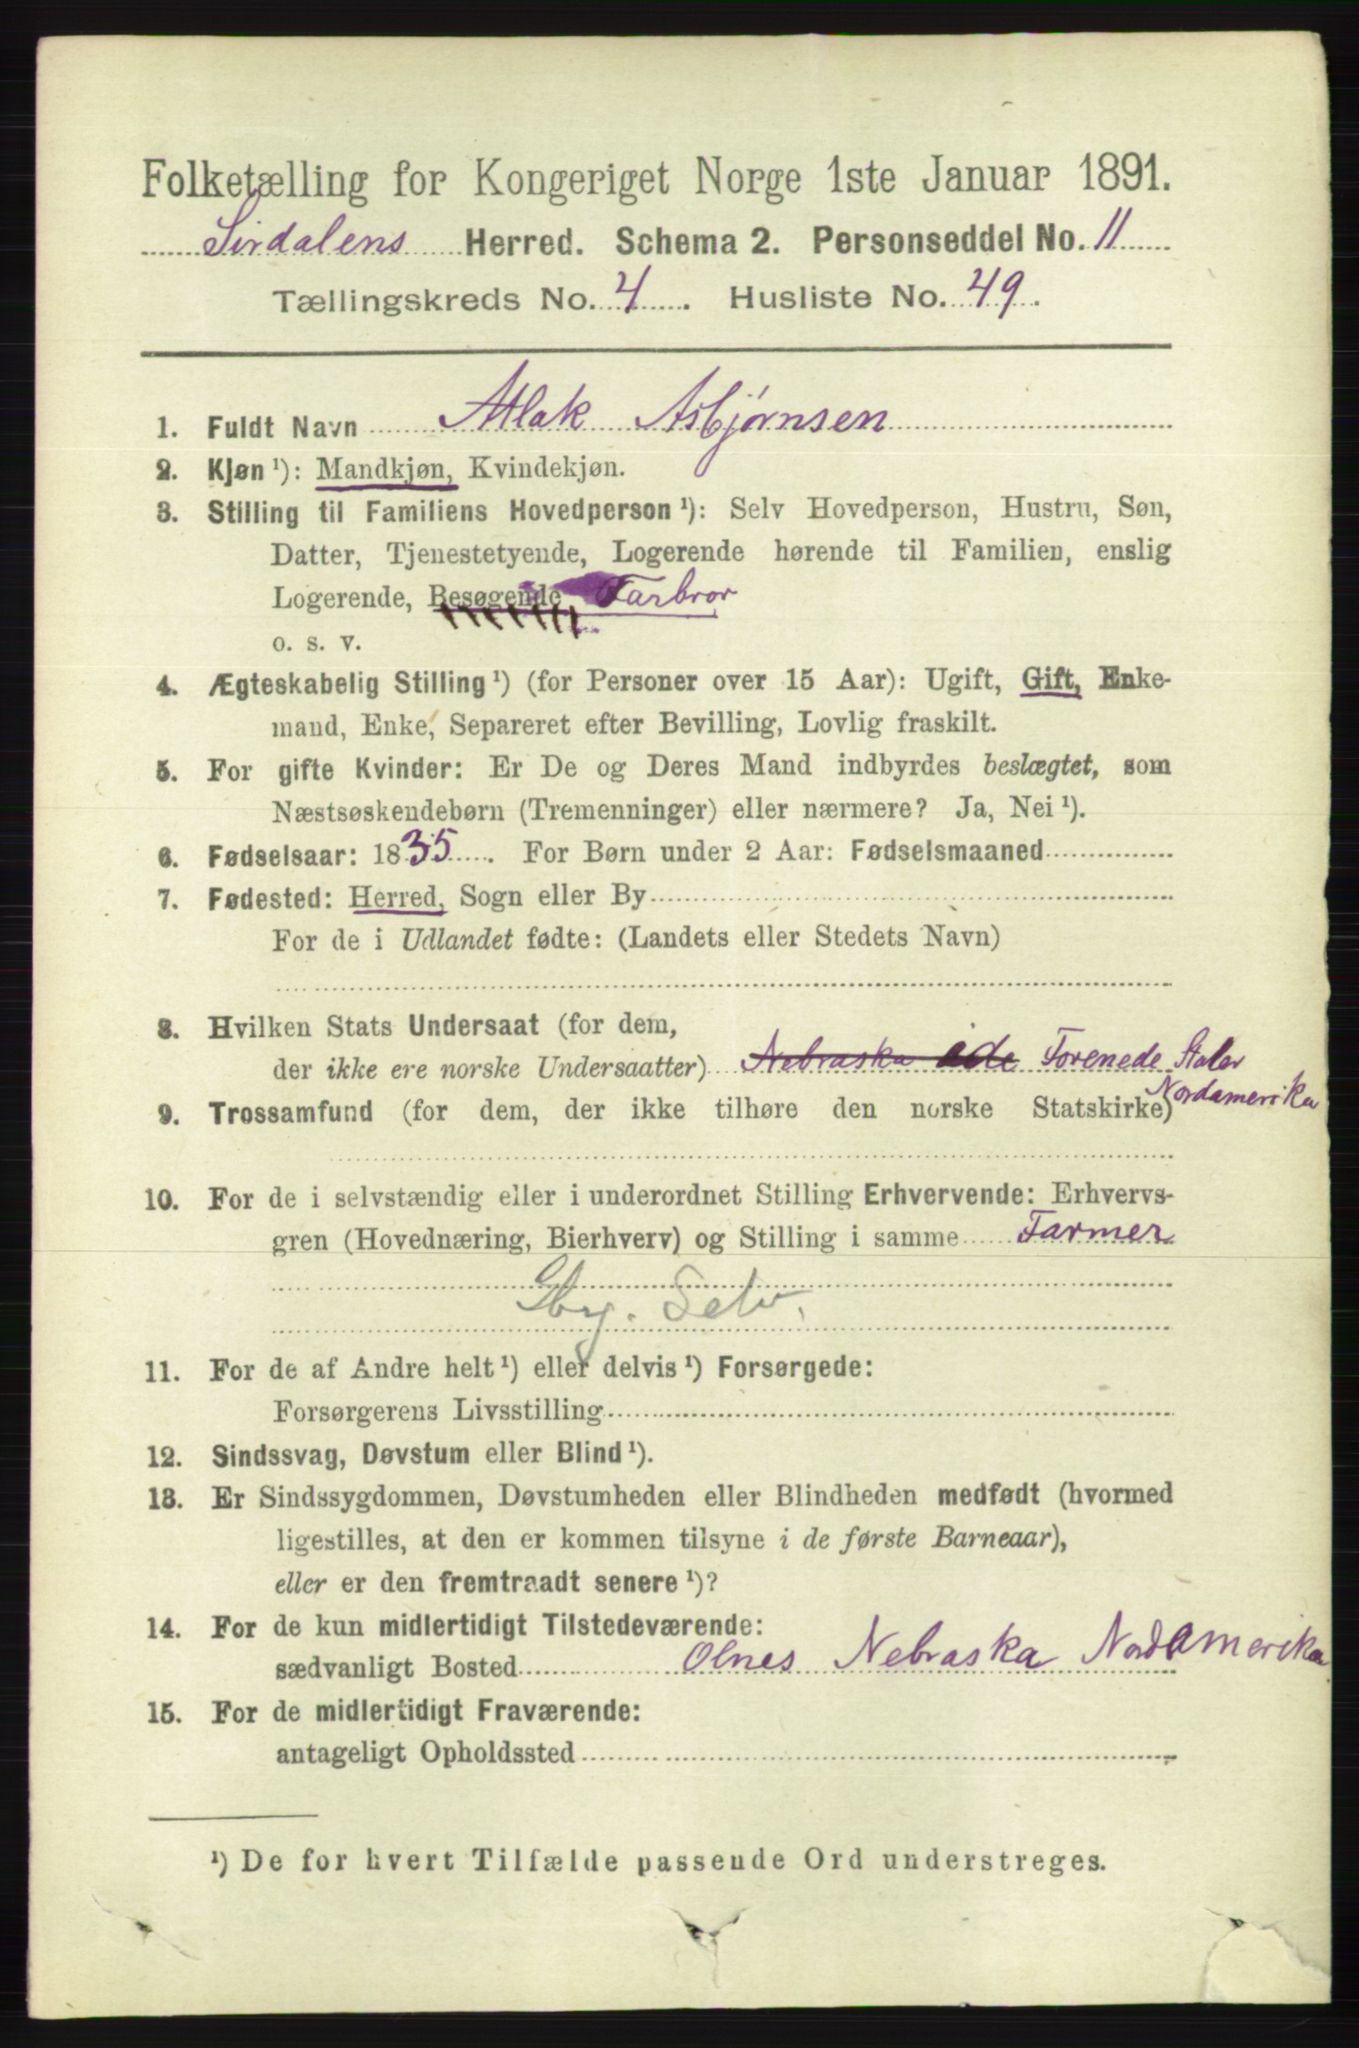 Folketælling for Kongeriget Norge 1ste Januar 1891.
Sirdalens Herred. Schema 2. Personseddel No. 11
Tællingskreds No. 4. Husliste No. 49.
1. Fuldt Navn Atlak Asbjørnsen
2. Kjøn ¹): Mandkjøn, Kvindekjøn.
3. Stilling til Familiens Hovedperson ¹): Selv Hovedperson, Hustru, Søn,
Datter, Tjenestetyende, Logerende hørende til Familien, enslig
Logerende, Besøgende Farbror
o. s. v.
4. Ægteskabelig Stilling ¹) (for Personer over 15 Aar): Ugift, Gift, Enke-
mand, Enke, Separeret efter Bevilling, Lovlig fraskilt.
5. For gifte Kvinder: Er De og Deres Mand indbyrdes beslægtet, som
Næstsøskendebørn (Tremenninger) eller nærmere? Ja, Nei ¹).
6. Fødselsaar: 1835. For Børn under 2 Aar: Fødselsmaaned
7. Fødested: Herred, Sogn eller By
For de i Udlandet fødte: (Landets eller Stedets Navn)
8. Hvilken Stats Undersaat (for dem,
der ikke ere norske Undersaatter) Nebraska i de Forenede Stater
Nordamerika
9. Trossamfund (for dem, der ikke tilhøre den norske Statskirke)
10. For de i selvstændig eller i underordnet Stilling Erhvervende: Erhvervs-
gren (Hovednæring, Bierhverv) og Stilling i samme Farmer
Gbr. Selv.
11. For de af Andre helt ¹) eller delvis ¹) Forsørgede:
Forsørgerens Livsstilling
12. Sindssvag, Døvstum eller Blind ¹).
13. Er Sindssygdommen, Døvstumheden eller Blindheden medfødt (hvormed
ligestilles, at den er kommen tilsyne i de første Barneaar),
eller er den fremtraadt senere ¹)?
14. For de kun midlertidigt Tilstedeværende:
sædvanligt Bosted Olnes Nebraska Nordamerika
15. For de midlertidigt Fraværende:
antageligt Opholdssted
¹) De for hvert Tilfælde passende Ord understreges.